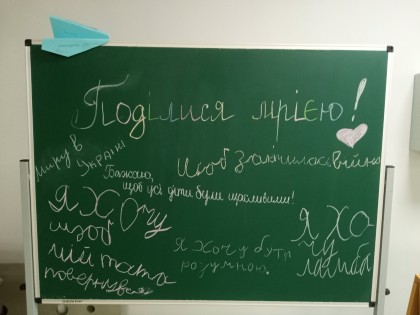 Поділися мрією!
Миру в
Україні
Бажаємо,
щоб усі діти були щасливими!
Щоб закінчилась війна
Я ХОчу
щоб
мій тато
повернувся
Я хочу бути
розумною.
Я ХО
чу